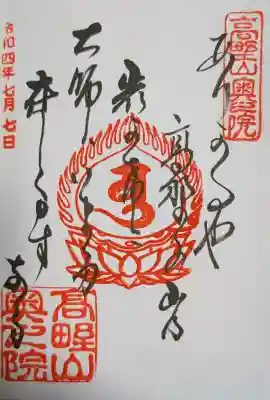 高野山奥之院
ありがたや
高野の山の
岩かげに
大師はいまだ
在します
なる
令和四年七月七日
高野山
奥之院